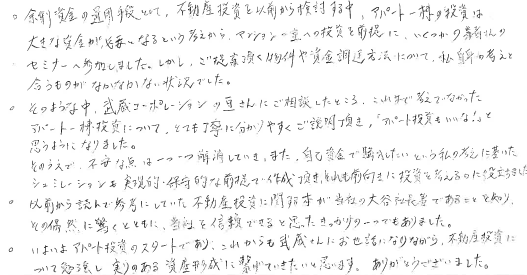 。余剰資金の運用手段として、不動産投資を以前から検討する中、アパート一棟の投資は
大きな資金が必要になるという考えから、マンション一室への投資を前提に、いくつかの業者さんの
セミナーへ参加しました。しかし、ご提案頂く物件や資金調達方法について、私自身の考えと
合うものがなかなかない状況でした。
。そのような中、武蔵コーポレーションの さんにご相談したところ、これまで考えてなかった
アパート一棟投資について、とても丁寧に分かりやすくご説明頂き、「アパート投資もいいな!」と
思うようになりました。
そのうえで、不安な点は一つ一つ解消していき、また、自己資金で購入したいという私の考えに基いた
シュミレーションも実現的・保守的な前提で作成頂き、それも前向きに投資を考えるのに役立ちました
。以前から読んで参考にしていた不動産投資に関する本が当社の大谷社長著であることを知り、
その偶然に驚くとともに、当社を信頼できると思ったきっかけの一つでもありました。
。いよいよアパート投資のスタートであり、これからも武蔵さんにお世話になりながら、不動産投資に
ついて勉強し実りのある資産形成に繋げていきたいと思います。ありがとうございました。